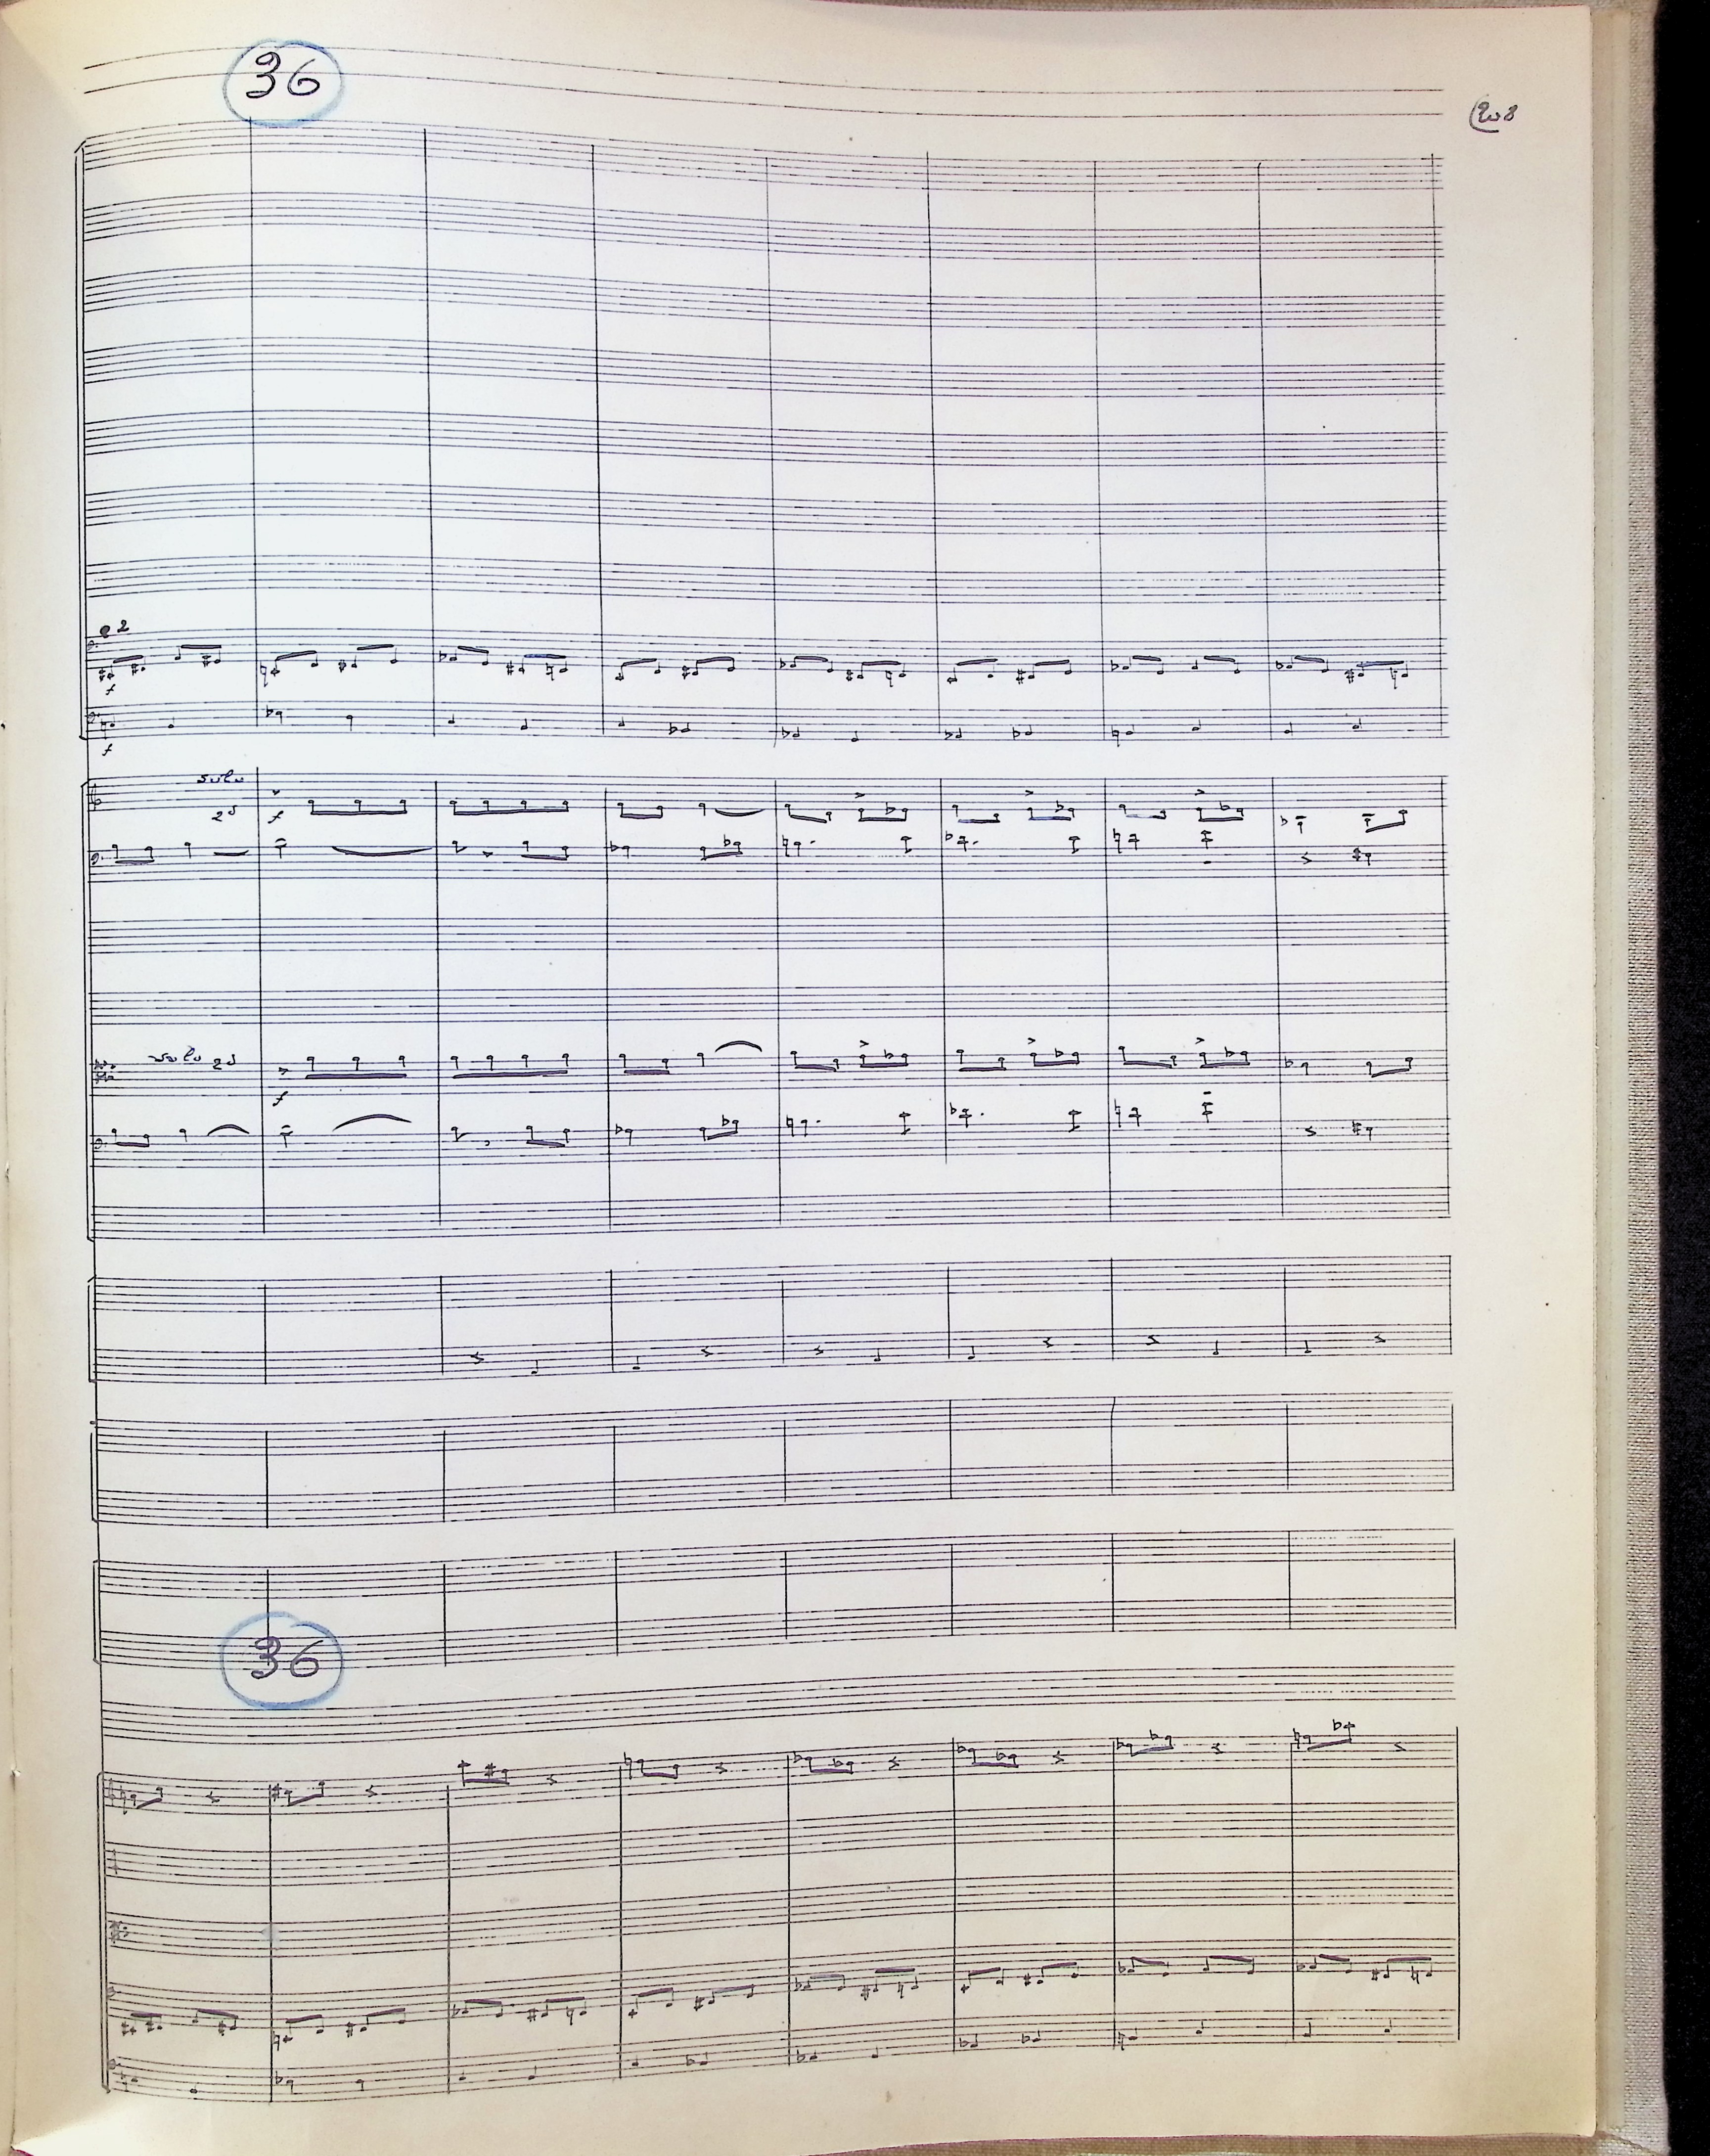 36
208
a 2
f
f
solo
2º
f
solo 2º
f
36